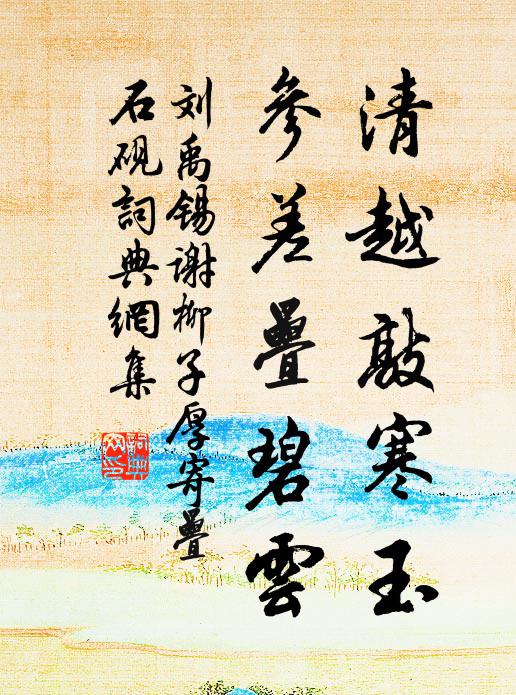 清越敲寒玉
參差疊碧雲
刘禹锡谢柳子厚寄疊
石砚詞典網集